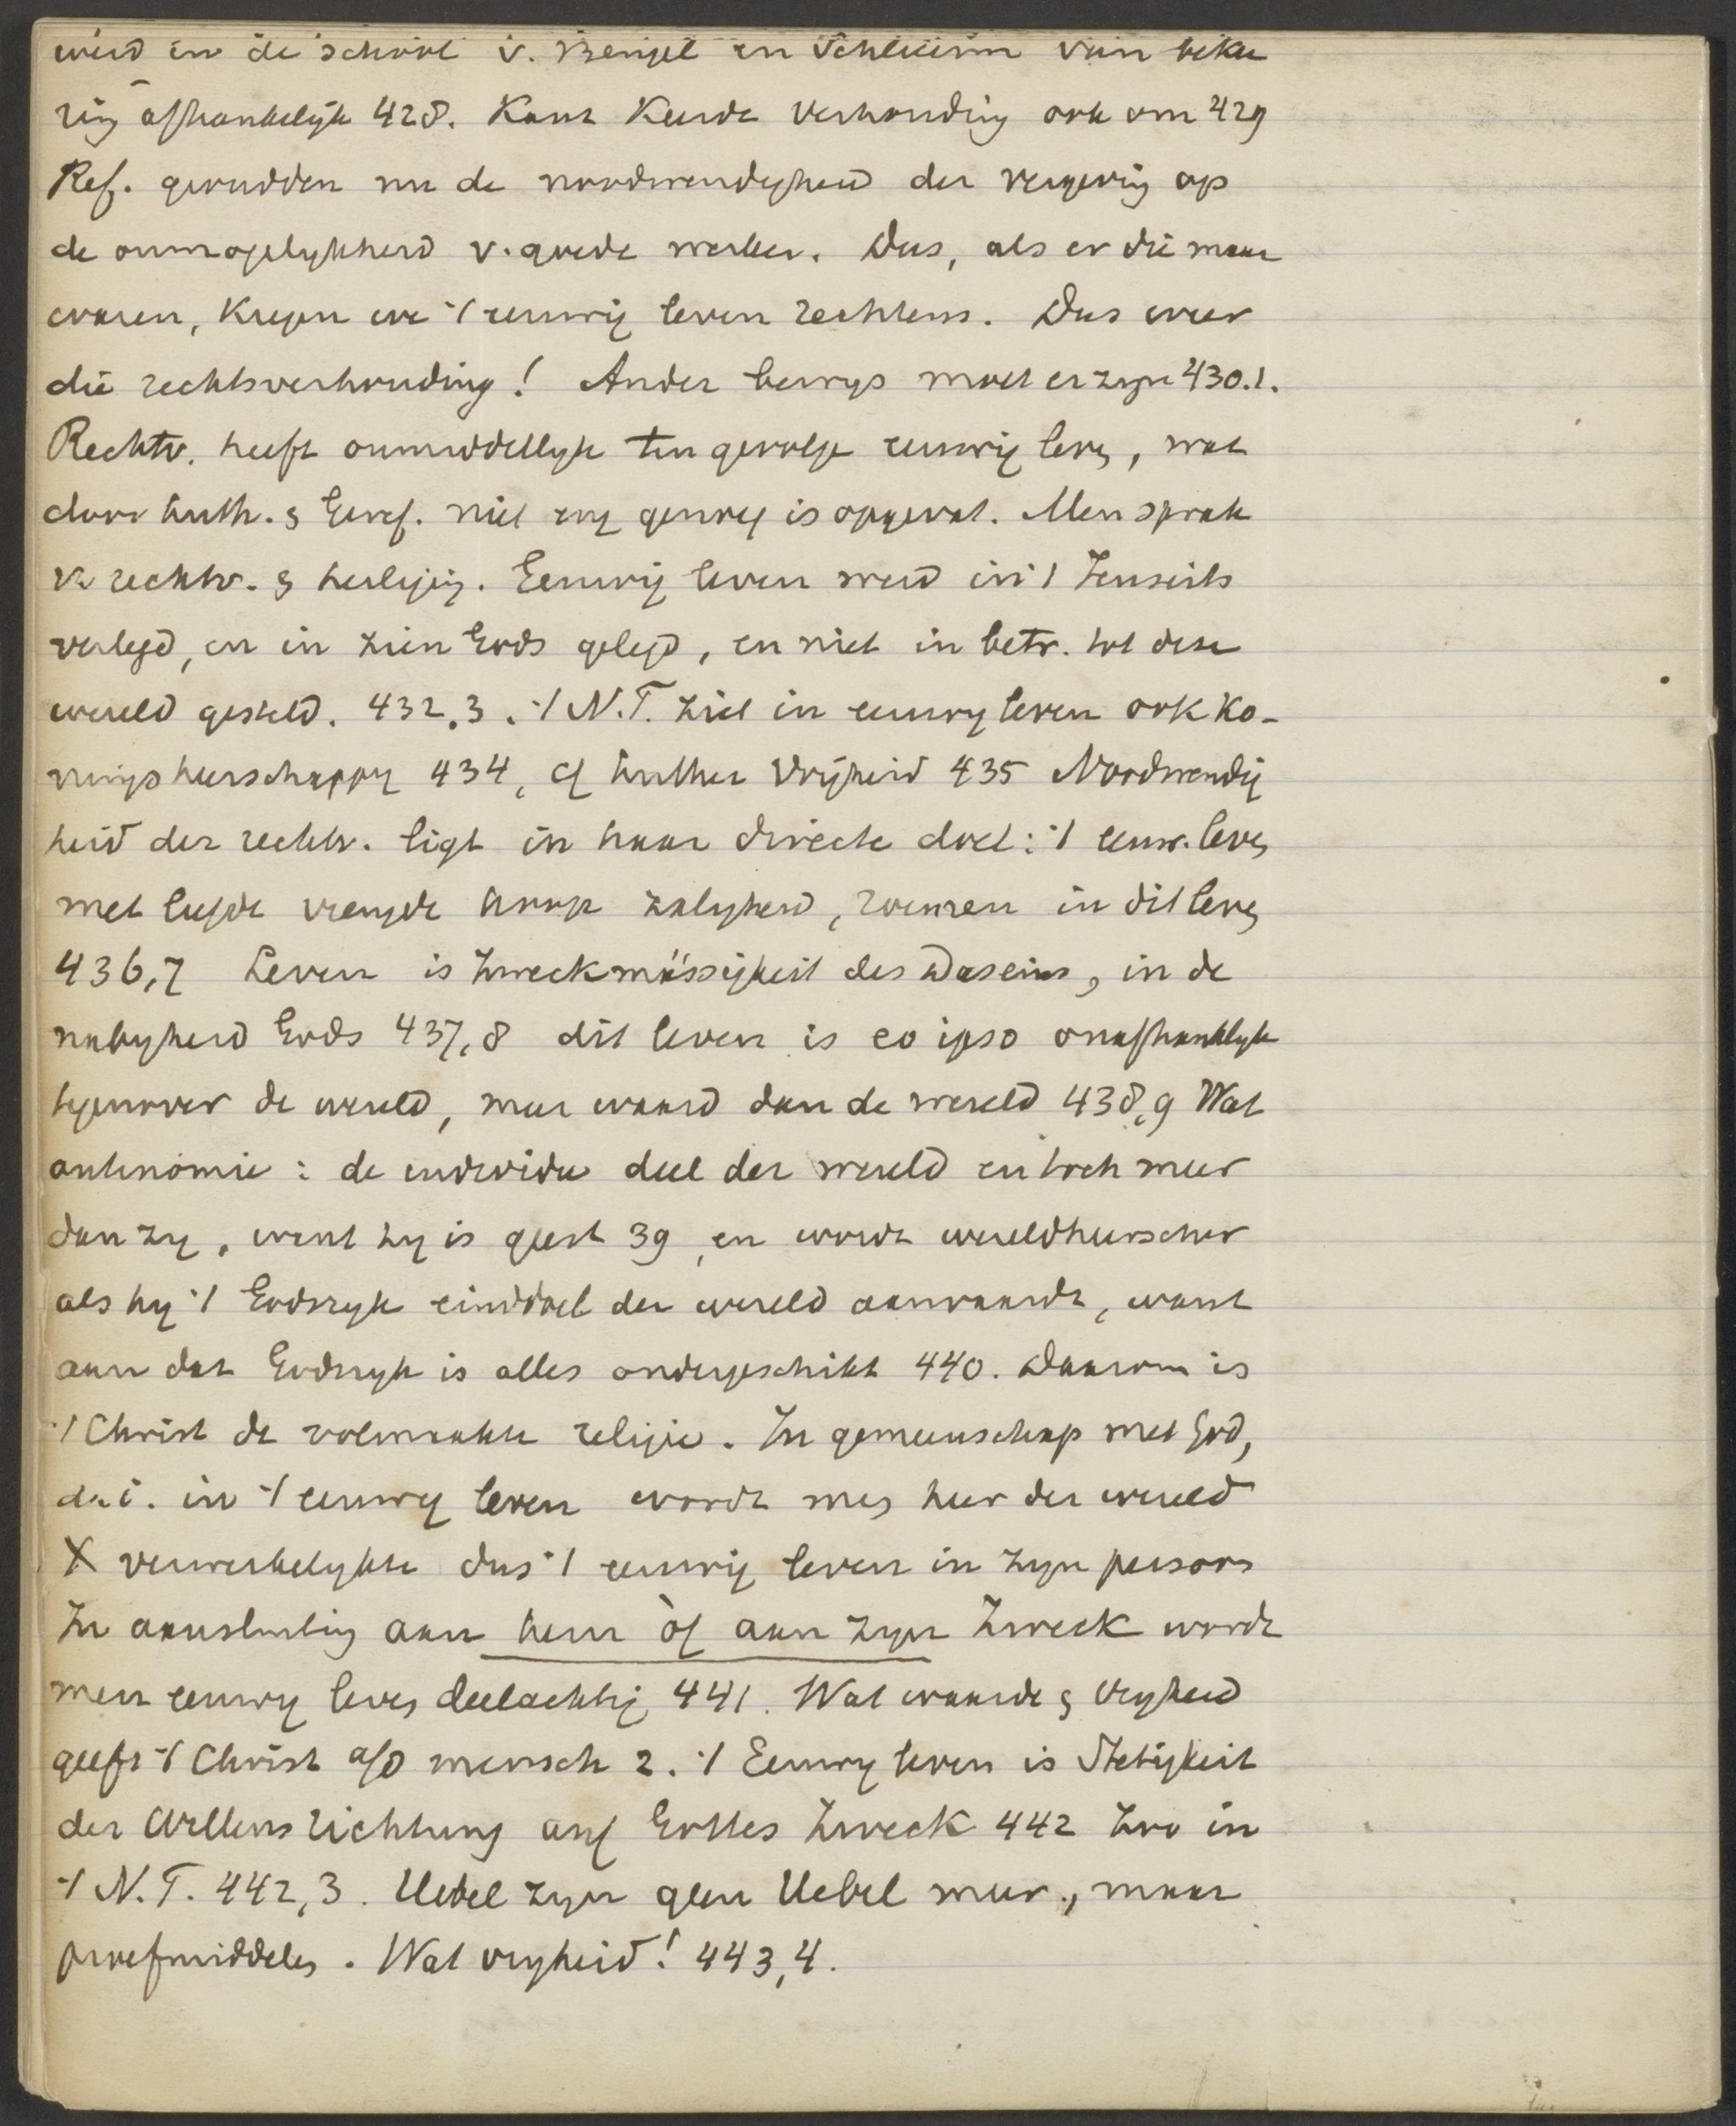 werd in de school v. Bengel en Schleierm van beke
ring afhankelijk 428. Kant Keerde Verhouding ook om 429
Ref. gronden nu de noodwendigheid der vergeving op
de onmogelijkheid v. goede werken. Dus, als er die maar
waren, Kregen we 't eeuwig leven rechtens. Dus weer
die rechtsverhouding! Ander bewys moet er zyn 430.1.
Rechtv. heeft onmiddellyk ten gevolge eeuwig leven, wat
door Luth. & Geref. niet eng genoeg is opgevat. Men sprak
v. rechtv. & heiliging. Eeuwig leven werd in 't Jenseits
verlegd, en in zien Gods gelegd, en niet in betr. tot deze
wereld gesteld. 432.3. 't N.T. ziet in eeuwig leven ook ko-
ningsheerschappy 434, cf Luther Vrijheid 435 Noodwendig
heid der rechtv. ligt in haar directe doel: 't eeuw. leven
met liefde vreugde hoop zaligheid, in dit leven
436,7 Leven is Zweckmässigkeit des Daseins, in de
nabyheid Gods 437,8 dit leven is eo ipso onafhanklyk
tegenover de wereld, meer waard dan de wereld 438,9 Wat
antinomie: de individu deel der wereld en toch meer
dan zy, want hy is geest 39, en wordt wereldheerscher
als hy 't Godsryk einddoel der wereld aanvaardt, want
aan dat Godsryk is alles ondergeschikt 440. Daarom is
't Christ de volmaakte religie. In gemeenschap met God,
d.i. in 't eeuwig leven wordt men heer der wereld
X verwerkelykte dus 't eeuwig leven in zyn persoon
In aansluiting aan hem òf aan zyn Zweck wordt
men eeuwig leven deelachtig 441. Wat waarde & vryheid
geeft 't Christ a/d mensch 2. 't Eeuwig leven is Stetigkeit
der Willensrichtung auf Gottes Zweck 442 Zoo in
't N.T. 442,3. Uebel zyn geen Uebel meer, maar
proefmiddelen. Wat vryheid! 443,4.